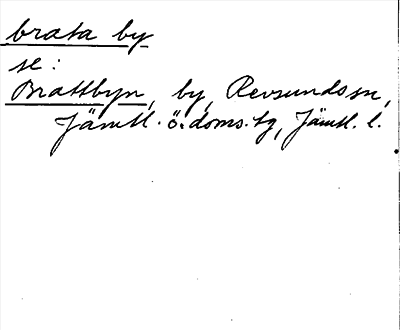 brata by
se:
Brattbyn, by, Revsunds sn,
Jämtl. ö. doms. tg, Jämtl. l.